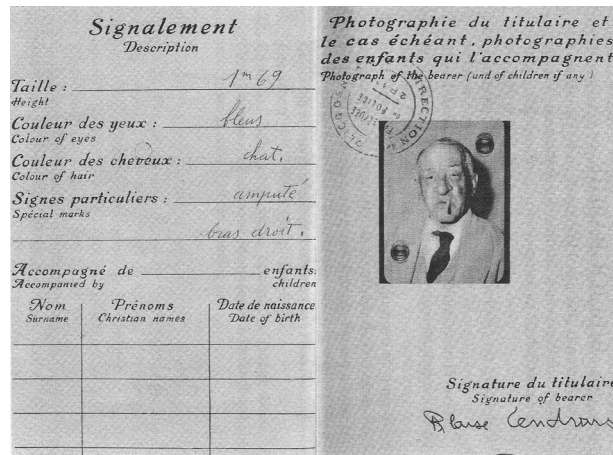 Signalement
Description
Taille : 1m 69
Height
Couleur des yeux : bleus
Colour of eyes
Couleur des cheveux : chat.
Colour of hair
Signes particuliers : amputé
Special marks
bras droit.
Accompagné de enfants
Accompanied by children
Nom Prénoms Date de naissance
Surname Christian names Date of birth
Photographie du titulaire et
le cas échéant, photographies
des enfants qui l'accompagnent
Photograph of the bearer (and of children if any)
DIRECTION
POLICE
Signature du titulaire
Signature of bearer
Blaise Cendrars